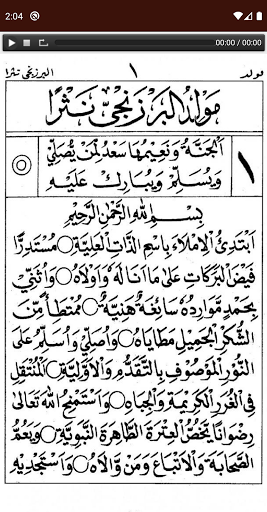 2:04
00:00 / 00:00
البرزنجي نثرا ١ مولد
مَوْلِدُ الْبَرْزَنْجِيْ نَثْرًا
١ اَلْجَنَّةُ وَنَعِيْمُهَا سَعْدٌ لِمَنْ يُصَلِّيْ
وَيُسَلِّمُ وَيُبَارِكُ عَلَيْهِ
بِسْمِ اللهِ الرَّحْمٰنِ الرَّحِيْمِ
اَبْتَدِئُ الْاِمْلَاءَ بِاسْمِ الذَّاتِ الْعَلِيَّةِ ○ مُسْتَدِرًّا
فَيْضَ الْبَرَكَاتِ عَلٰى مَا اَنَالَهُ وَاَوْلَاهُ ○ وَاُثَنِّيْ
بِحَمْدٍ مَوَارِدُهُ سَائِغَةٌ هَنِيَّةٌ ○ مُمْتَطِأً مِنَ
الشُّكْرِ الْجَمِيْلِ مَطَايَاهُ ○ وَاُصَلِّيْ وَاُسَلِّمُ عَلَى
النُّوْرِ الْمَوْصُوْفِ بِالتَّقَدُّمِ وَالْاَوَّلِيَّةِ ○ اَلْمُنْتَقِلِ
فِى الْغُرَرِ الْكَرِيْمَةِ وَالْجِبَاهِ ○ وَاَسْتَمْنِحُ اللهَ تَعَالٰى
رِضْوَانًا يَخُصُّ الْعِتْرَةَ الطَّاهِرَةَ النَّبَوِيَّةَ ○ وَيَعُمُّ
الصَّحَابَةَ وَالْاَتْبَاعَ وَمَنْ وَالَاهُ ○ وَاَسْتَجْدِيْهِ